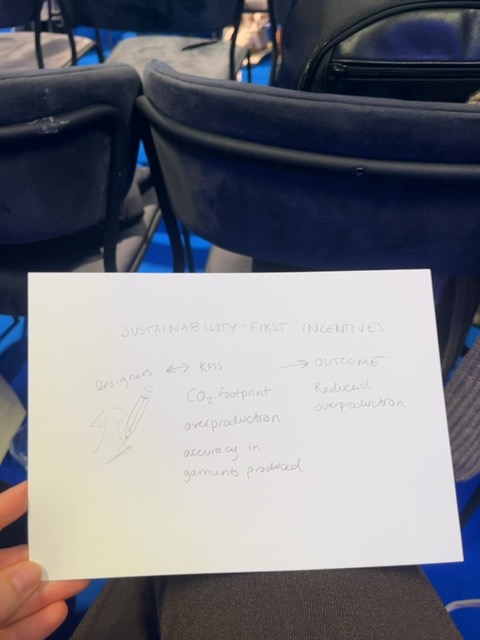 SUSTAINABILITY-FIRST INCENTIVES
Designers ↔ KPIS → OUTCOME
CO₂ footprint
overproduction
accuracy in
garments produced
Reduced
overproduction